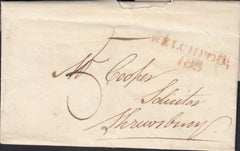 WELCHPOOL
183
5
Mr Cooper
Solicitor
Shrewsbury